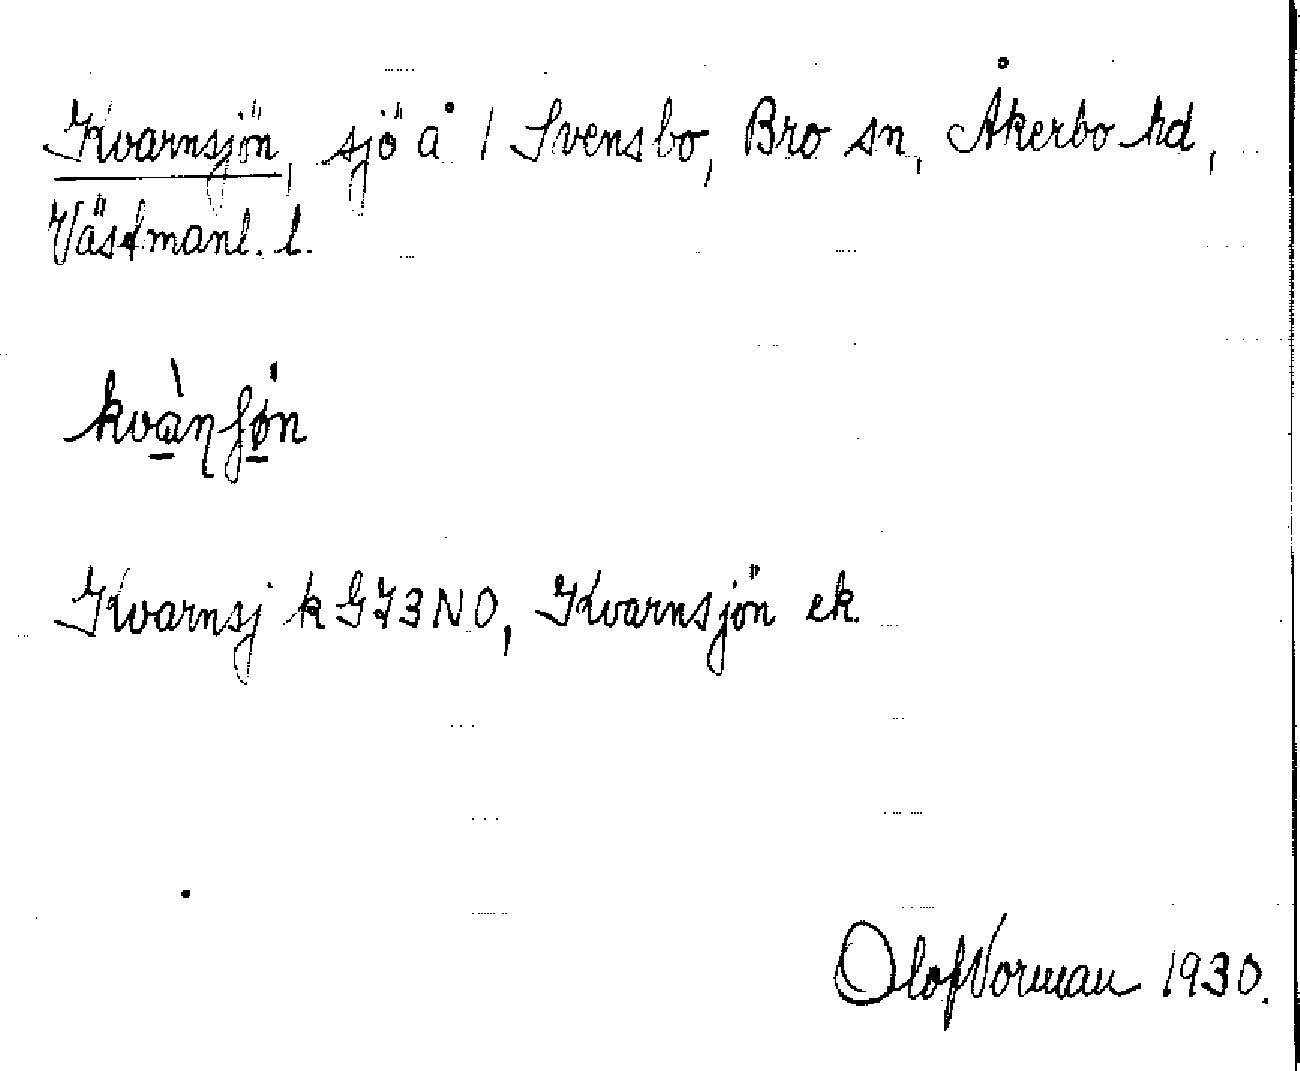 Kvarnsjön, sjö å 1 Svensbo, Bro sn, Åkerbo hd,
Västmanl. l.
kvànʃøn
Kvarnsj k GJ3NO, Kvarnsjön ek
Olof Vorman 1930.